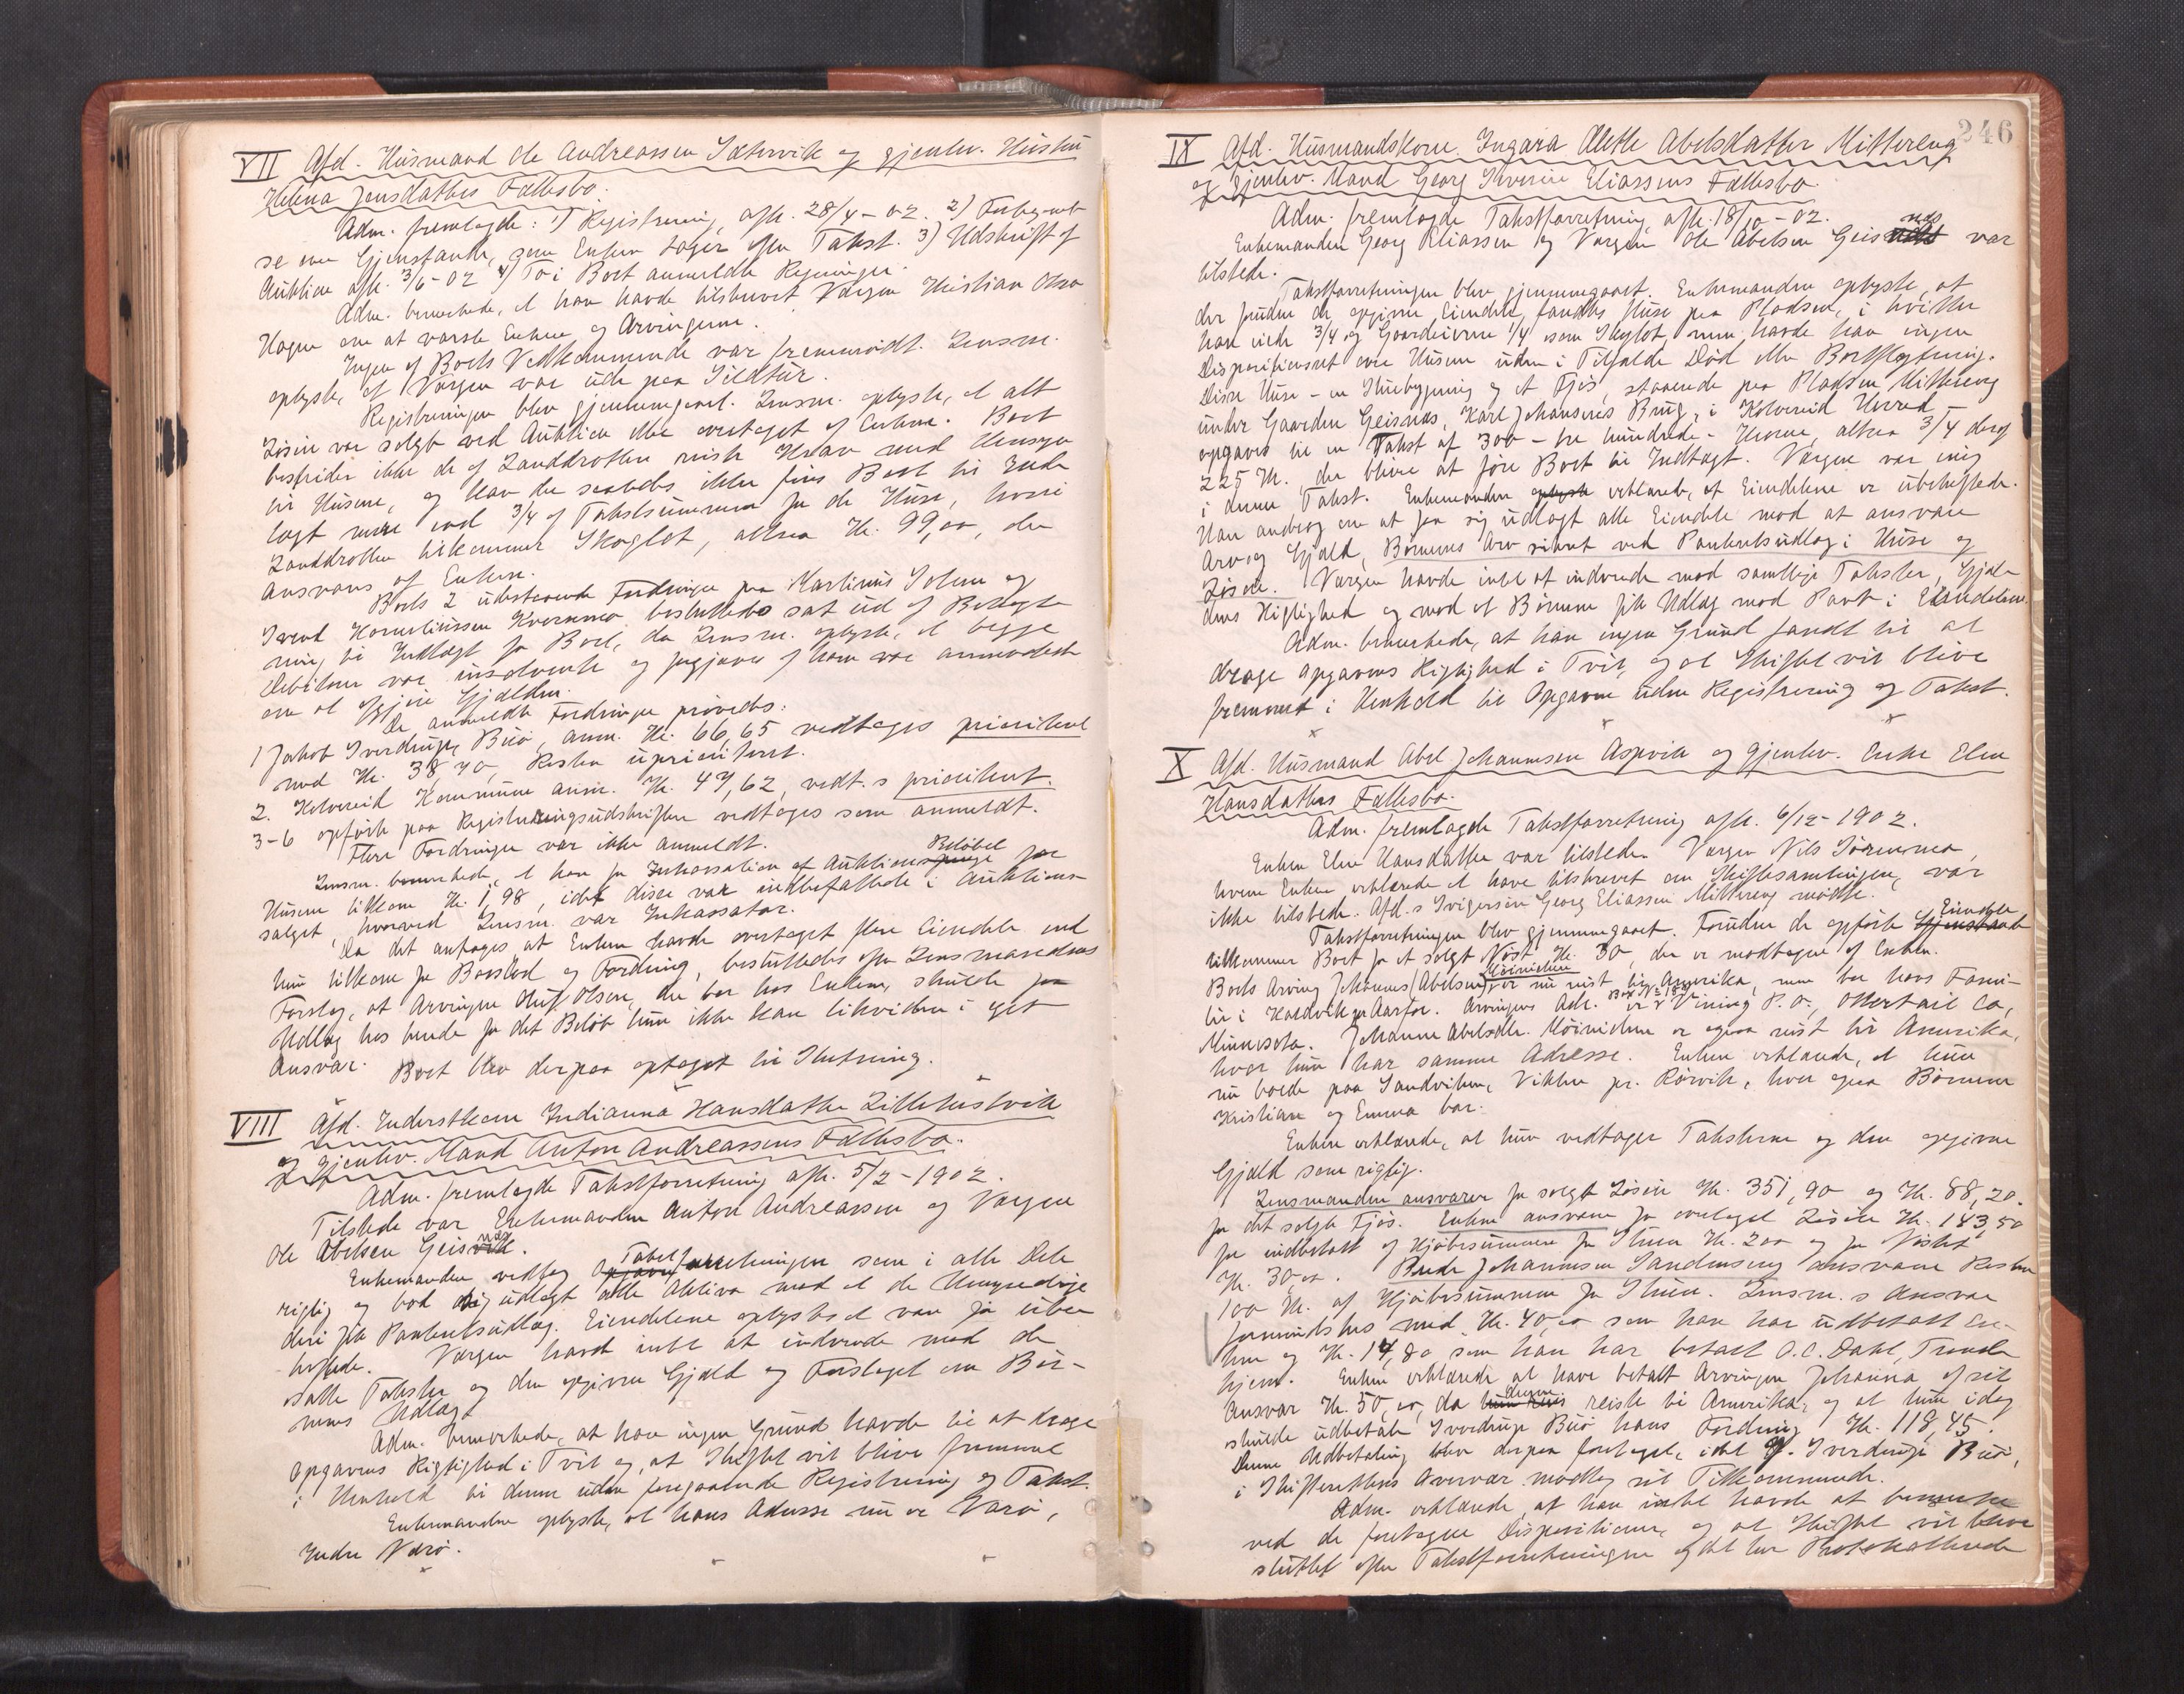 VII Afd. Husmand Ole Andreassen Sætervik og gjenlev. Hustru
Helena Jensdatters Fællesbo.
Adm. fremlagde: 1) Registrering, afh. 28/4-02. 2) Fortegnel-
se over Gjenstande, som Enken tager efter Takst. 3) Udskrift af
Auktion afh. 3/6-02 4) To i Boet anmeldte Regninger.
Adm. bemerkede, at han havde tilskrevet Værgen Kristian Olsen
Hagen om at varsle Enken og Arvingerne.
Ingen af Boets Vedkommende var fremmødt. Lensm.
oplyste, at Værgen var ude paa Sildtur.
Registreringen blev gjennemgaaet. Lensm. oplyste, at alt
Løsøre var solgt ved Auktion eller overtaget af Enken. Boet
bestrider ikke de af Landdrotten reiste Krav med Hensyn
til Husene, og kan der saaledes ikke føres Boet til Indt
tægt mere end 3/4 af Takstsummen for de Huse, hvori
Landdrotten tilkommer Skoglot, altsaa Kr. 99,00, der
ansvares af Enken.
Boets 2 udestaaende Fordringer paa Martinus Solem og
Svend Korneliussen Kvernmo besluttedes sat ud af Beregn
ning til Indtægt for Boet, da Lensm. oplyste, at begge
Debitorer var insolvente og forgjæves af ham var anmodede
om at opgjøre Gjælden.
De anmeldte Fordringer prøvedes:
1 Jakob Sverdrups Buø, anm. Kr. 66,65 vedtages prioriteret
med Kr. 38,70, Resten uprioriteret.
2. Kolvereid Kommune anm. Kr. 47,62, vedt. s prioriteret.
3-6 opført paa Registreringsudskriften vedtages som anmeldt.
Flere Fordringer var ikke anmeldt.
Lensm. bemerkede, at han for Inkassation af Auktions Beløbet for
Husene tilkom Kr. 1,98, idet disse var indbefattede i Auktions-
salget, hvorved Lensm. var Inkassator.
Da det antages at Enken havde overtaget flere Eiendele end
hun tilkom for Boslod og Fordring, besluttedes efter Lensmandens
Forslag, at Arvingen Oluf Olsen, der bor hos Enken, skulde faa
Udlæg hos hende for det Beløb hun ikke kan likvidere i eget
Ansvar. Boet blev derpaa optaget til Slutning.
VIII Afd. Inderstkone Indianna Hansdatter Lillehustvik
og gjenlev. Mand Anton Andreassens Fællesbo.
Adm. fremlagde Takstforretning afh. 5/2-1902.
Tilstede var Enkemanden Anton Andreassen og Værgen
Ole Abelsen Geisnæs.
Enkemanden vedtog Takstforretningen som i alle Dele
rigtig og bad sig udlagt alle Aktiva mod at de Umyndige
deri fik Panteretsudlæg. Eiendelene oplystes at være for ube-
heftede. Værgen havde intet at indvende mod de
satte Takster og den opgivne Gjæld og Forslaget om Bør-
nenes Udlægt
Adm. bemerkede, at han ingen Grund havde til at drage
Opgavens Rigtighed i Tvil og, at Skiftet vil blive fremmet
i Henhold til denne uden foregaaende Registrering og Takst.
Enkemanden oplyste, at hans Adresse nu er Værø,
Indre Værø.
246
IX Afd. Husmandskone Ingara Alette Abelsdatter Mittereng
og Gjenlev. Mand Georg Severin Eliassens Fællesbo.
Adm. fremlagde Takstforretning afh. 18/10-02.
Enkemanden Georg Eliassen og Værgen Ole Abelsen Geisnæs var
tilstede.
Takstforretningen blev gjennemgaaet. Enkemanden oplyste, at
der foruden de opgivne Eiendele fandtes Huse paa Pladsen, i hvilke
han eiede 3/4 og Gaardeieren 1/4 som Skoglot, men havde han ingen
Dispositionsret over Husene uden i Tilfælde Død eller Bortflytning.
Disse Huse - en Stuebygning og et Fjøs, staaende paa Pladsen Mittereng
under Gaarden Geisnæs, Karl Johansens Brug, i Kolvereid Herred -
opgaves til en Takst af 300 - tre hundrede - Kroner, altsaa 3/4 deraf
225 Kr. der bliver at føre Boet til Indtægt. Værgen var enig
i denne Takst. Enkemanden oplyste erklærede, at Eiendelene er ubeheftede.
Han androg om at faa sig udlagt alle Eiendele mod at ansvare
Arv og Gjæld, Børnenes Arv sikret ved Panteretsudlæg i Huse og
Løsøre. Værgen havde intet at indvende mod samtlige Takster, Gjæl-
dens Rigtighed og mod at Børnene fik Udlæg mod Pant i Eiendelene.
Adm. bemerkede, at han ingen Grund fandt til at
drage Opgavens Rigtighed i Tvil, og at Skiftet vil blive
fremmet i Henhold til Opgaven uden Registrering og Takst.
X Afd. Husmand Abel Johannesen Aspvik og gjenlev. Enke Elen
Hansdatters Fællesbo.
Adm. fremlagde Takstforretning afh. 6/12-1902.
Enken Elen Hansdatter var tilstede. Værgen Nils Sørenmo,
hvem Enken erklærede at have tilskrevet om Skiftesamlingen, var
ikke tilstede. Afd.s Svigersøn Georg Eliassen Mittereng mødte.
Takstforretningen blev gjennemgaaet. Foruden de opførte Gjenstande Eiendele
tilkommer Boet for et solgt Nøst Kr. 30, der er modtagne af Enken.
Boets Arving Johannes Abelsen er nu reist til Amerika, men bor hans Fami-
lie i Kaldvik pr Aarfor. Arvingens Adr. er Vining P.O., Ottertail Co,
Minnesota. Johanna Abelsdtr. er ogsaa reist til Amerika,
hvor hun har samme Adresse. Enken erklærede, at hun
nu boede paa Sandviken, Vikten pr. Rørvik, hvor ogsaa Børnene
Kristian og Emma bor.
Enken erklærede, at hun vedtager Taksterne og den opgivne
Gjæld som rigtig.
Lensmanden ansvarer for solgt Løsøre Kr. 351,90 og Kr. 88,20.
for det solgte Fjøs. Enken ansvarer for overtaget Løsøre Kr. 183,50
for indbetalt af Kjøbesummen for Stuen Kr. 200 og for Nøstet
Kr. 30,00. Peder Johannesen Sandmseng ansvarer Resten
100 Kr. af Kjøbesummen for Stuen. Lensm.s Ansvar
formindskes med Kr. 40,00 som han har udbetalt En-
ken og Kr. 14,80 som han har betalt O.C. Dahl, Trond-
hjem. Enken erklærede at have betalt Arvingen Johanna af sit
Ansvar Kr. 50,00, da denne reiste til Amerika, og at hun idag
skulde udbetale Sverdrups Buø hans Fordring Kr. 118,45.
Denne Udbetaling blev derpaa foretaget, idet J. Sverdrups Buø,
i Skifterettens Overvær modtog sit Tilkommende.
Adm. erklærede, at han intet havde at bemerke
ved de foretagne Dispositioner, og at Skiftet vil blive
sluttet efter Takstforretningen og det her Protokollerede